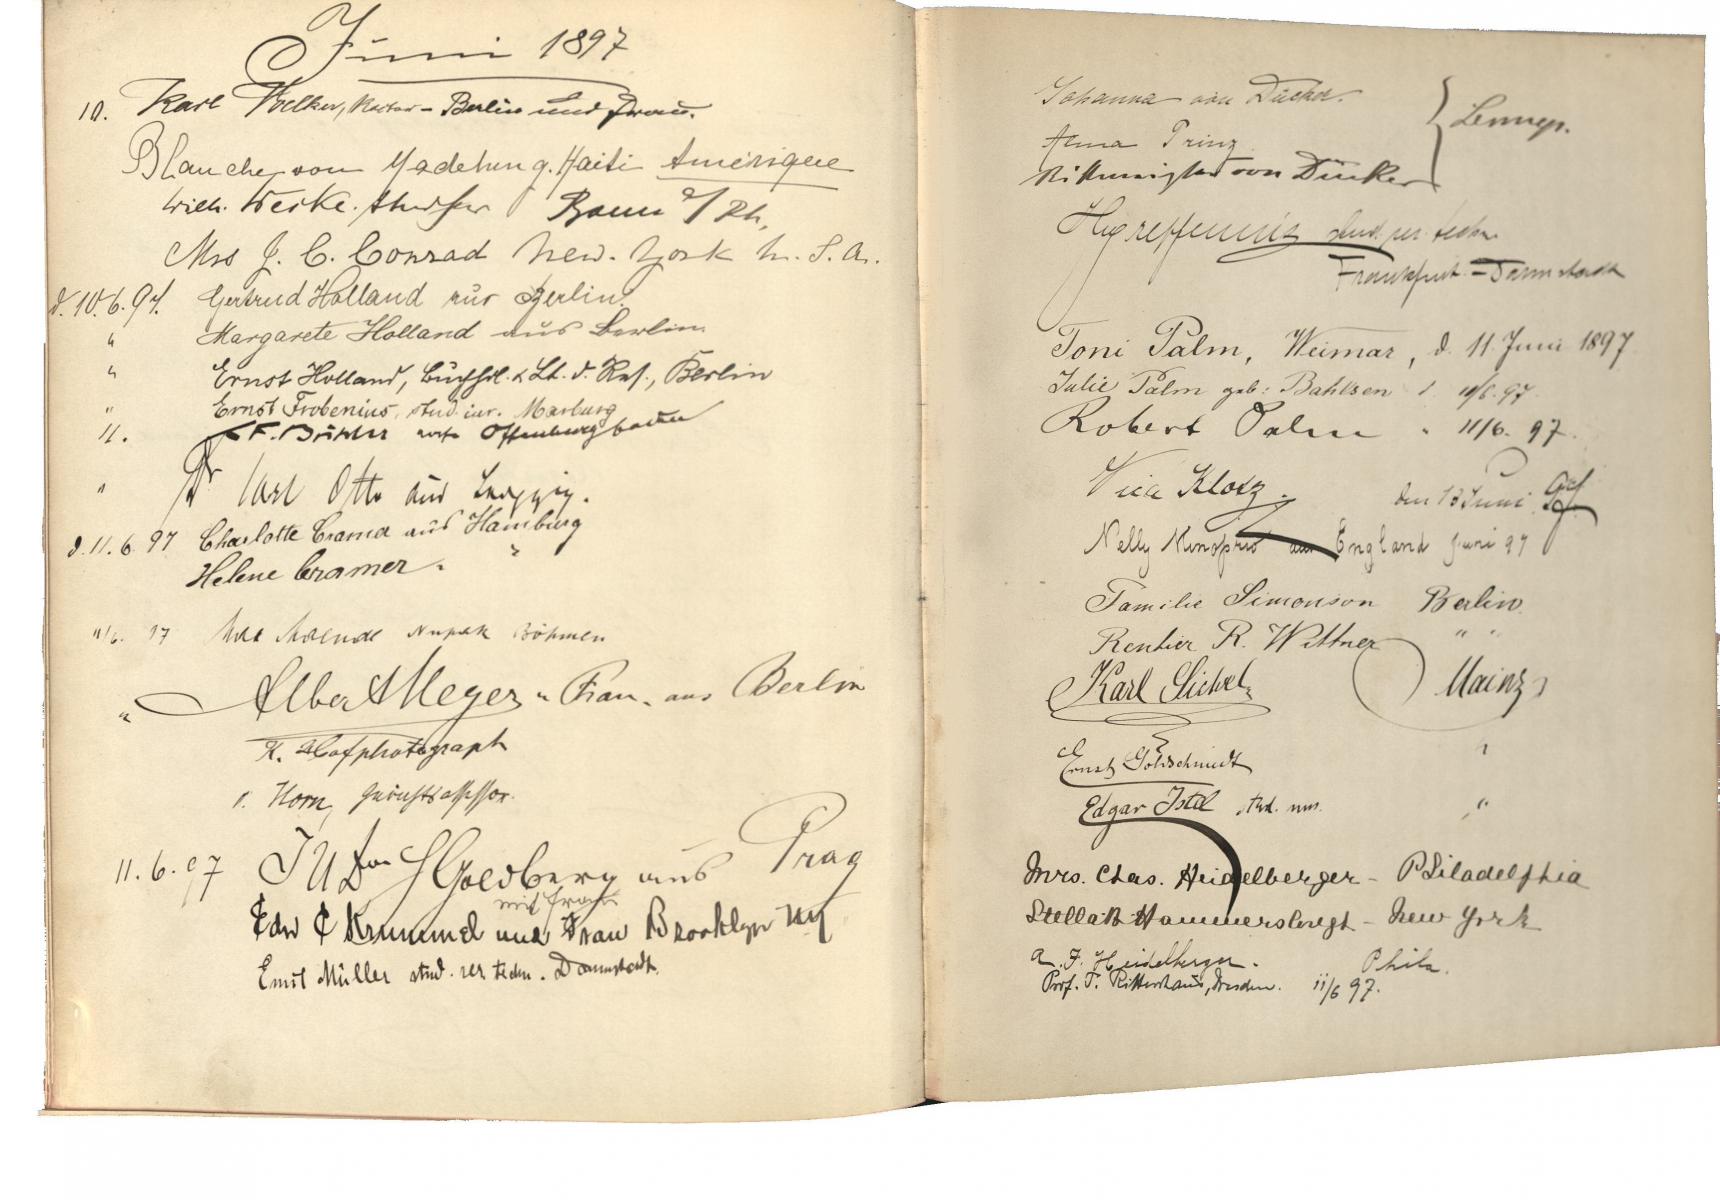 Juni 1897
10. Karl Voelker, Rector - Berlin und Frau.
Blanche von Madelung. Haiti Amérique
Wilh. Weske. Bonn a/Rh,
Mrs J. C. Conrad New-York U. S. A.
d. 10.6.97. Gertrud Holland aus Berlin.
" Margarete Holland aus Berlin
" Ernst Holland, Buchhdl. & Lt. d. Res., Berlin
" Ernst Frobenius, stud. iur. Marburg
11. F. Bühler aus Offenburg Baden
" Dr Carl Otto aus Leipzig.
d. 11.6.97 Charlotte Cramer aus Hamburg
Helene Cramer. "
11/6. 97 Böhmen
" Albert Meyer u Frau. aus Berlin
K. Hofphotograph
v. Horn, Gerichtsassessor.
11.6.97 Goldberg aus Prag
mit Frau
Edw C Krummel und Frau Brooklyn NY
Emil Müller stud. rer. techn. Darmstadt.
Johanna von Dücker.
Anna Prinz } Lennep.
von Dücker
stud. rer. techn.
Frankfurt - Darmstadt
Toni Palm, Weimar, d. 11. Juni 1897
Julie Palm geb: Bahlsen " 11/6. 97.
Robert Palm " 11/6. 97.
Klotz. den 13 Juni 97.
Nelly aus England Juni 97
Familie Simonson Berlin
Rentier R. Wittner " "
Karl Sichel Mainz
Ernst Goldschmidt "
Edgar Istel stud. mus. "
Mrs. Chas. Heidelberger - Philadelphia
Stella Hammerslough - New York
A. F. Heidelberger. Phila.
Prof. F. Rittershaus, Dresden. 11/6 97.